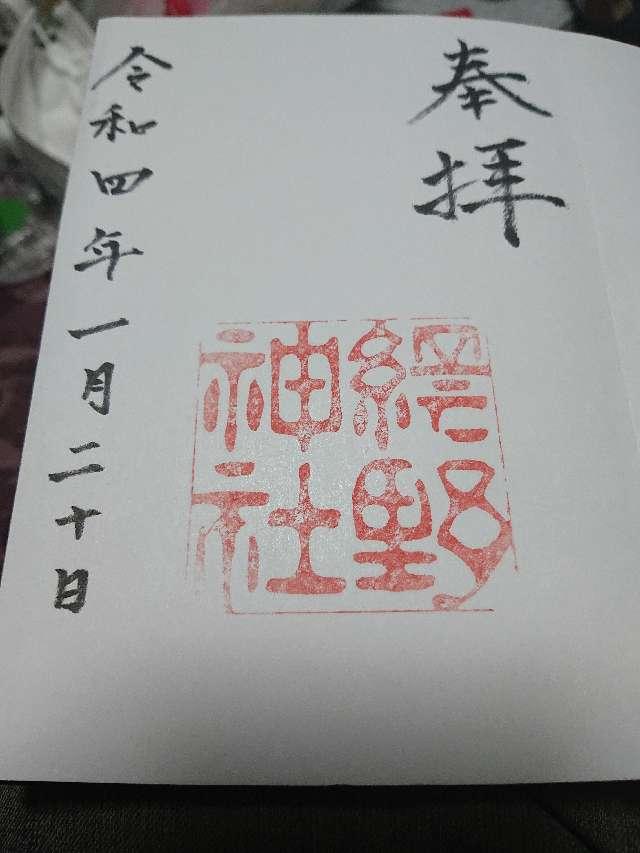 奉拝
網野
神社
令和四年一月二十日